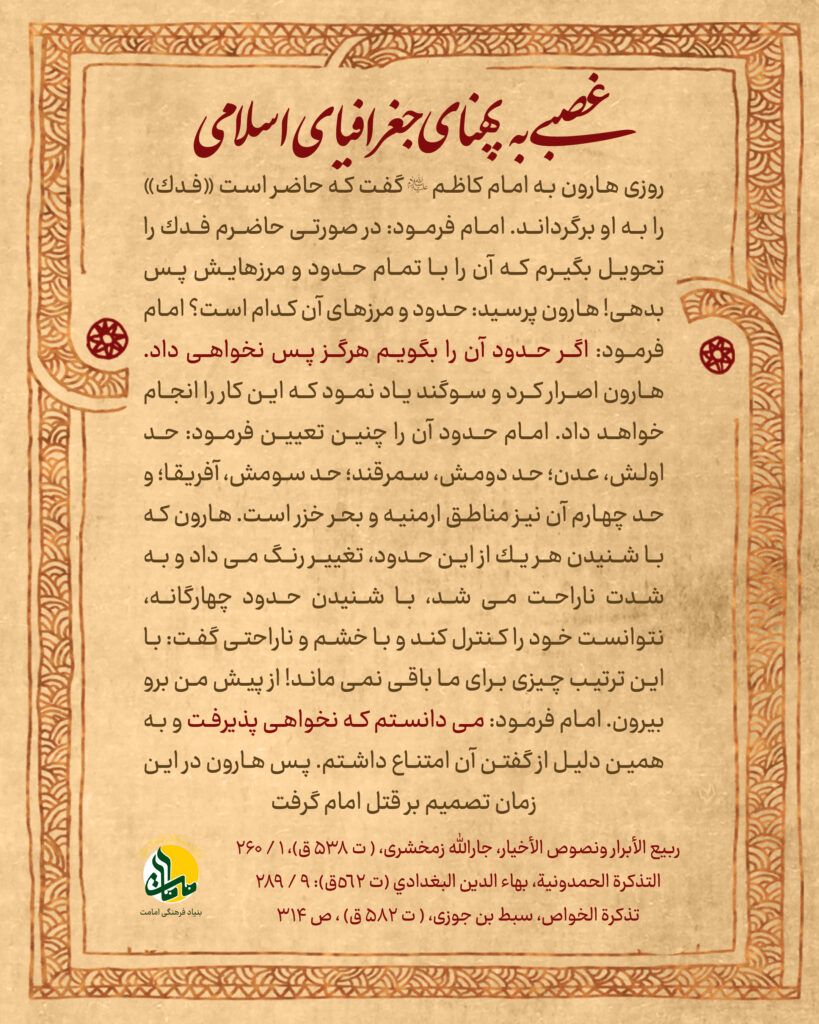 غصبی به پهنای جغرافیای اسلامی
روزی هارون به امام کاظم علیه‌السلام گفت که حاضر است «فدك»
را به او برگرداند. امام فرمود: در صورتی حاضرم فدك را
تحویل بگیرم که آن را با تمام حدود و مرزهایش پس
بدهی! هارون پرسید: حدود و مرزهای آن کدام است؟ امام
فرمود: اگر حدود آن را بگویم هرگز پس نخواهی داد.
هارون اصرار کرد و سوگند یاد نمود که این کار را انجام
خواهد داد. امام حدود آن را چنین تعیین فرمود: حد
اولش، عدن؛ حد دومش، سمرقند؛ حد سومش، آفریقا؛ و
حد چهارم آن نیز مناطق ارمنیه و بحر خزر است. هارون که
با شنیدن هر یك از این حدود، تغییر رنگ می داد و به
شدت ناراحت می شد، با شنیدن حدود چهارگانه،
نتوانست خود را کنترل کند و با خشم و ناراحتی گفت: با
این ترتیب چیزی برای ما باقی نمی ماند! از پیش من برو
بیرون. امام فرمود: می دانستم که نخواهی پذیرفت و به
همین دلیل از گفتن آن امتناع داشتم. پس هارون در این
زمان تصمیم بر قتل امام گرفت
ربیع الأبرار ونصوص الأخیار، جارالله زمخشری، ( ت ۵۳۸ ق)، ۱ / ۲۶۰
التذكرة الحمدونیة، بهاء الدین البغدادي (ت ۵۶۲ق): ۹ / ۲۸۹
تذکرة الخواص، سبط بن جوزی، ( ت ۵۸۲ ق) ، ص ۳۱۴
امامت
بنیاد فرهنگی امامت